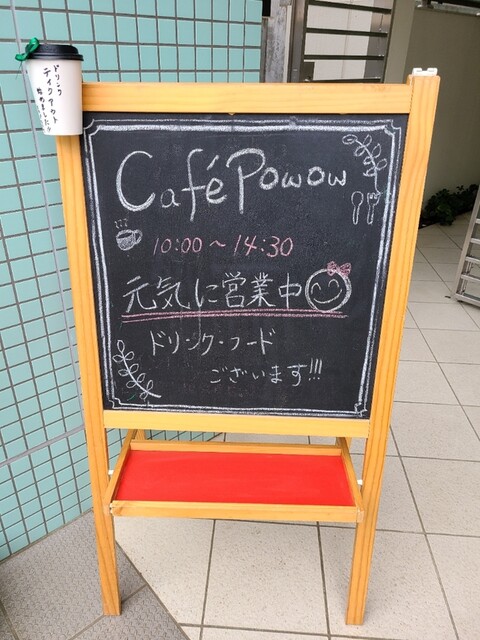 ドリンク
テイクアウト
始めました
Café Powow
10:00～14:30
元気に営業中
ドリンク・フード
ございます!!!